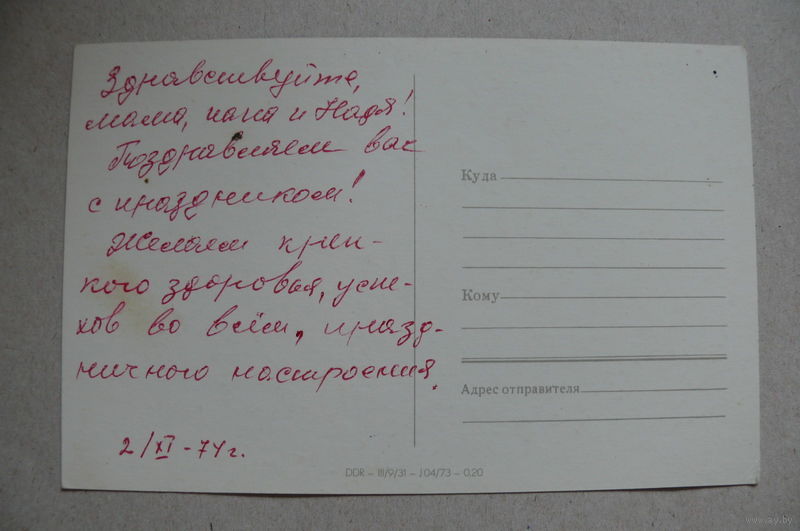 Здравствуйте,
мама, папа и Надя!
Поздравляем вас
с праздником!
Желаем креп-
кого здоровья, успе-
хов во всём, празд-
ничного настроения.
2/XI - 74г.
Куда
Кому
Адрес отправителя
DDR – III/9/31 – J 04/73 – 0,20
www.ay.by